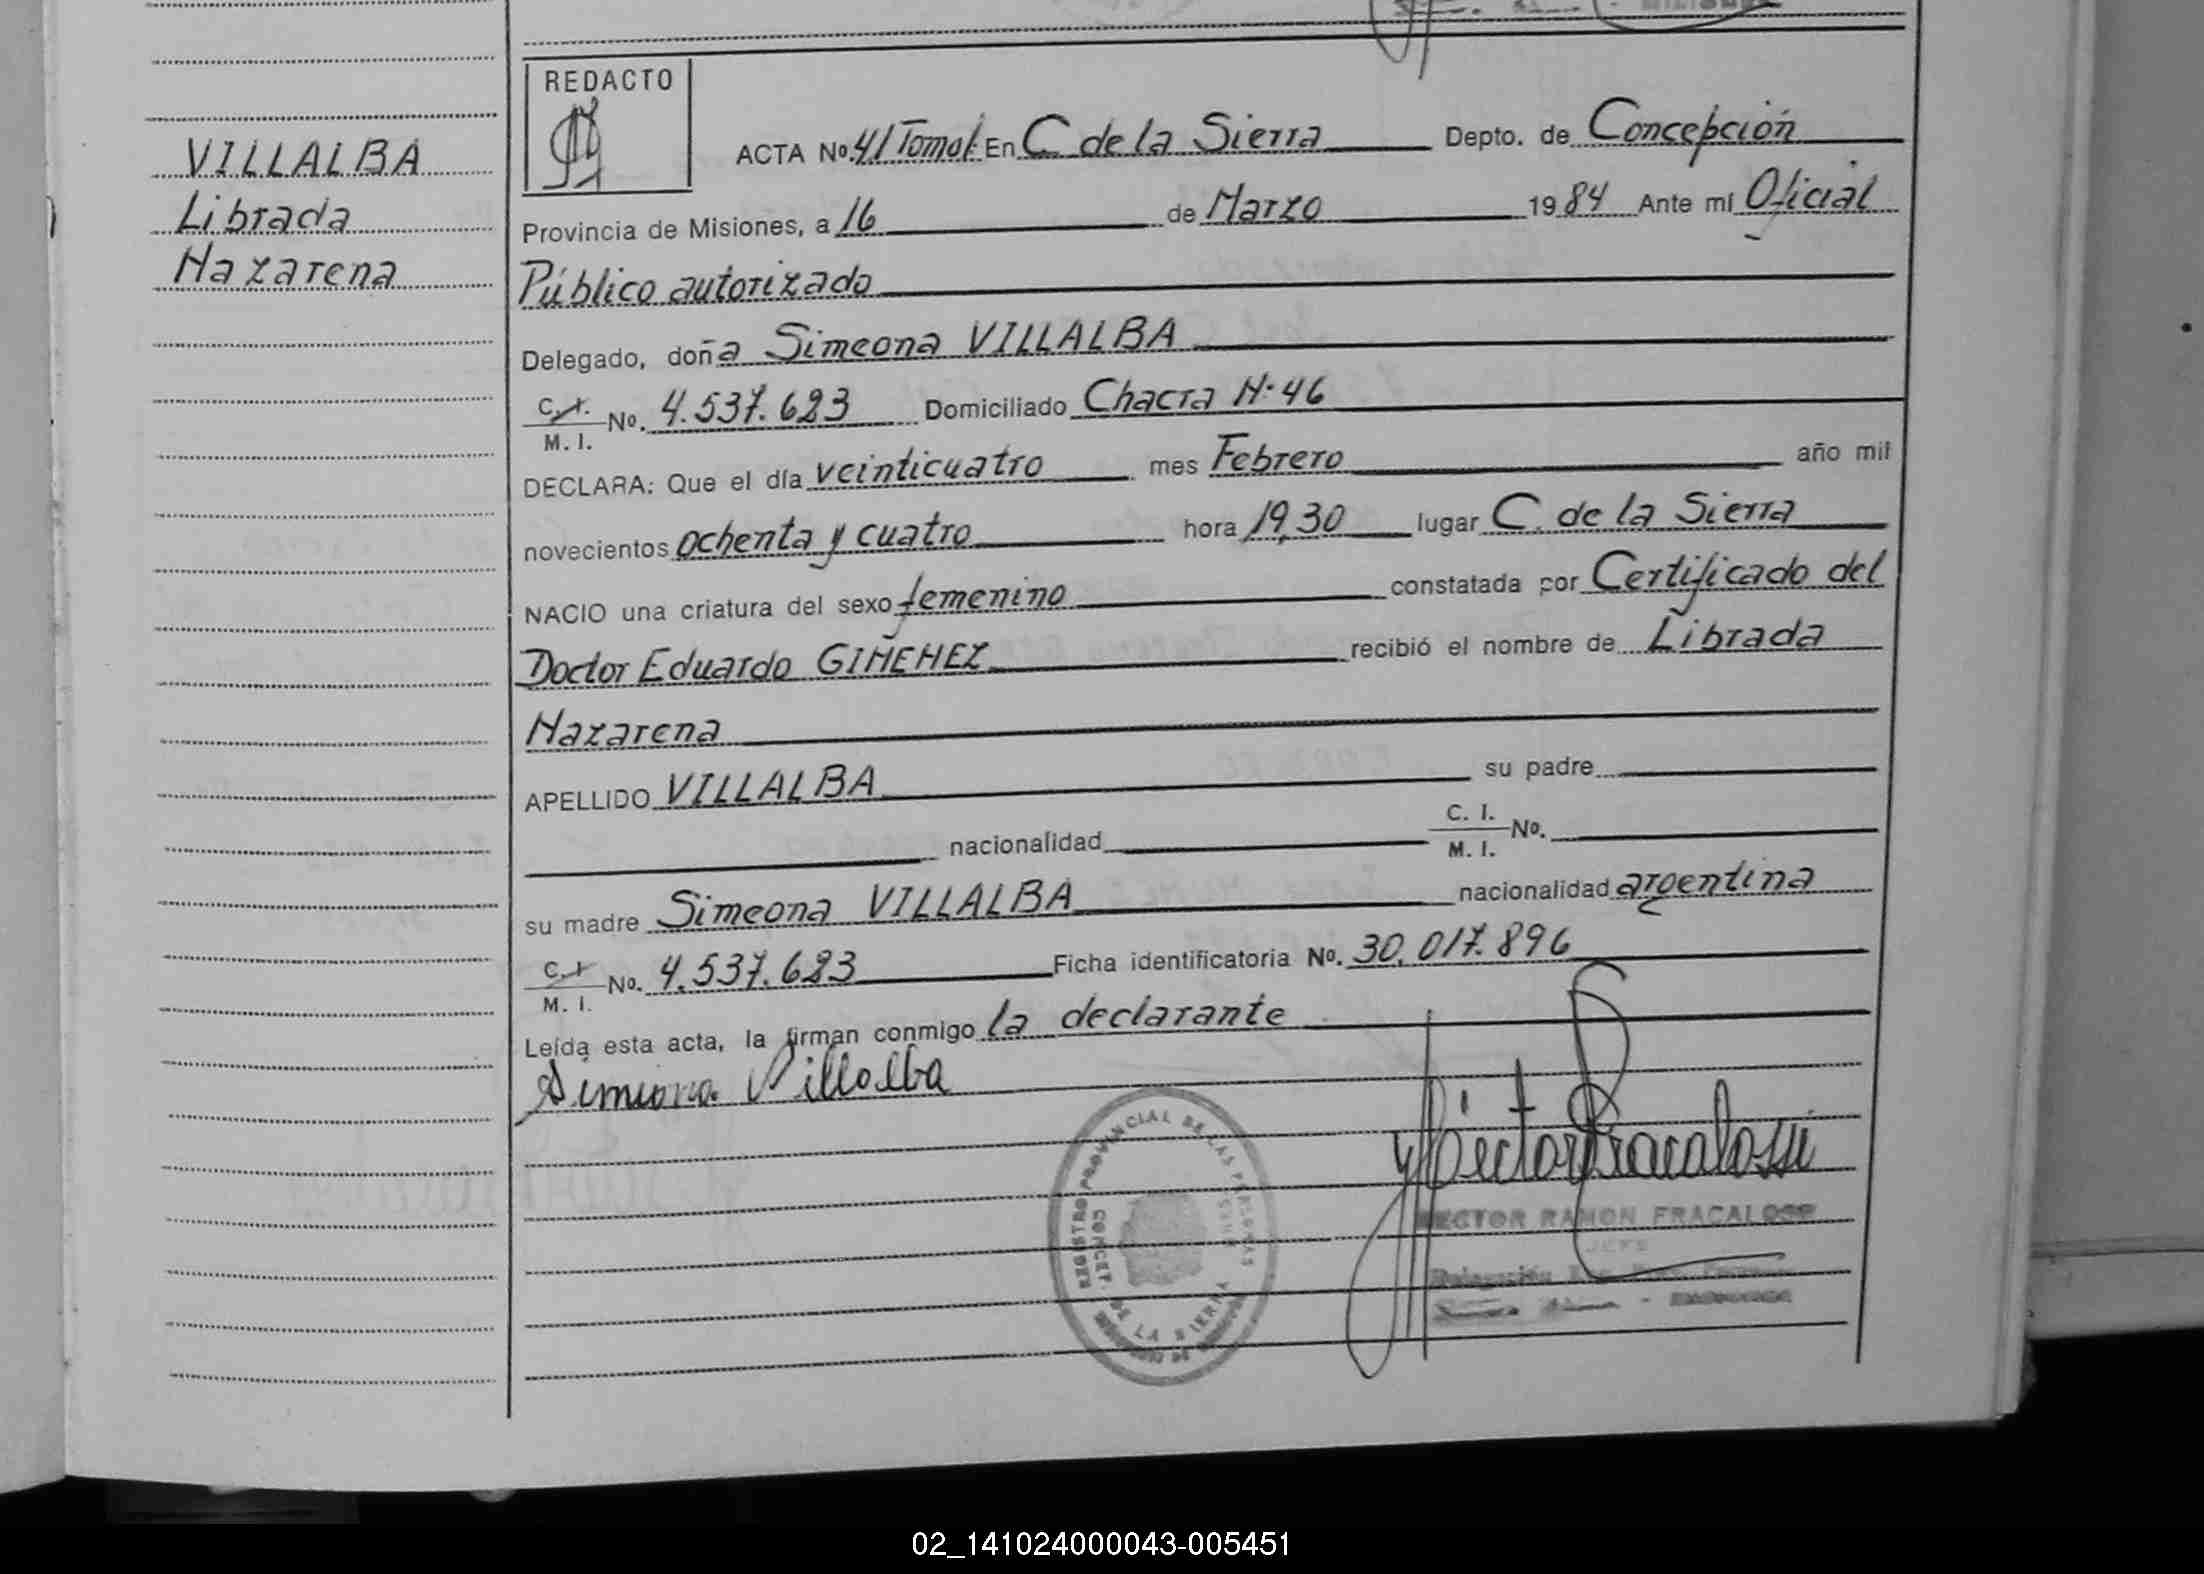 REDACTO
VILLALBA
Librada
Nazarena
ACTA No. 41 Tomo I En C de la Sierra Depto. de Concepción
Provincia de Misiones, a 16 de Marzo 1984 Ante mí Oficial
Público autorizado
Delegado, doña Simeona VILLALBA
C. I. / M. I. No. 4.537.623 Domiciliado Chacra N° 46
DECLARA: Que el día veinticuatro mes Febrero año mil
novecientos ochenta y cuatro hora 19,30 lugar C. de la Sierra
NACIO una criatura del sexo femenino constatada por Certificado del
Doctor Eduardo GIMENEZ recibió el nombre de Librada
Nazarena
APELLIDO VILLALBA su padre
nacionalidad C. I. / M. I. No.
su madre Simeona VILLALBA nacionalidad argentina
C. I. / M. I. No. 4.537.623 Ficha identificatoria No. 30.017.896
Leída esta acta, la firman conmigo la declarante
Simeona Villalba
Hector Fracalossi
HECTOR RAMON FRACALOSSI
JEFE
REGISTRO PROVINCIAL DE LAS PERSONAS
CONCEP. DE LA SIERRA
02_141024000043-005451